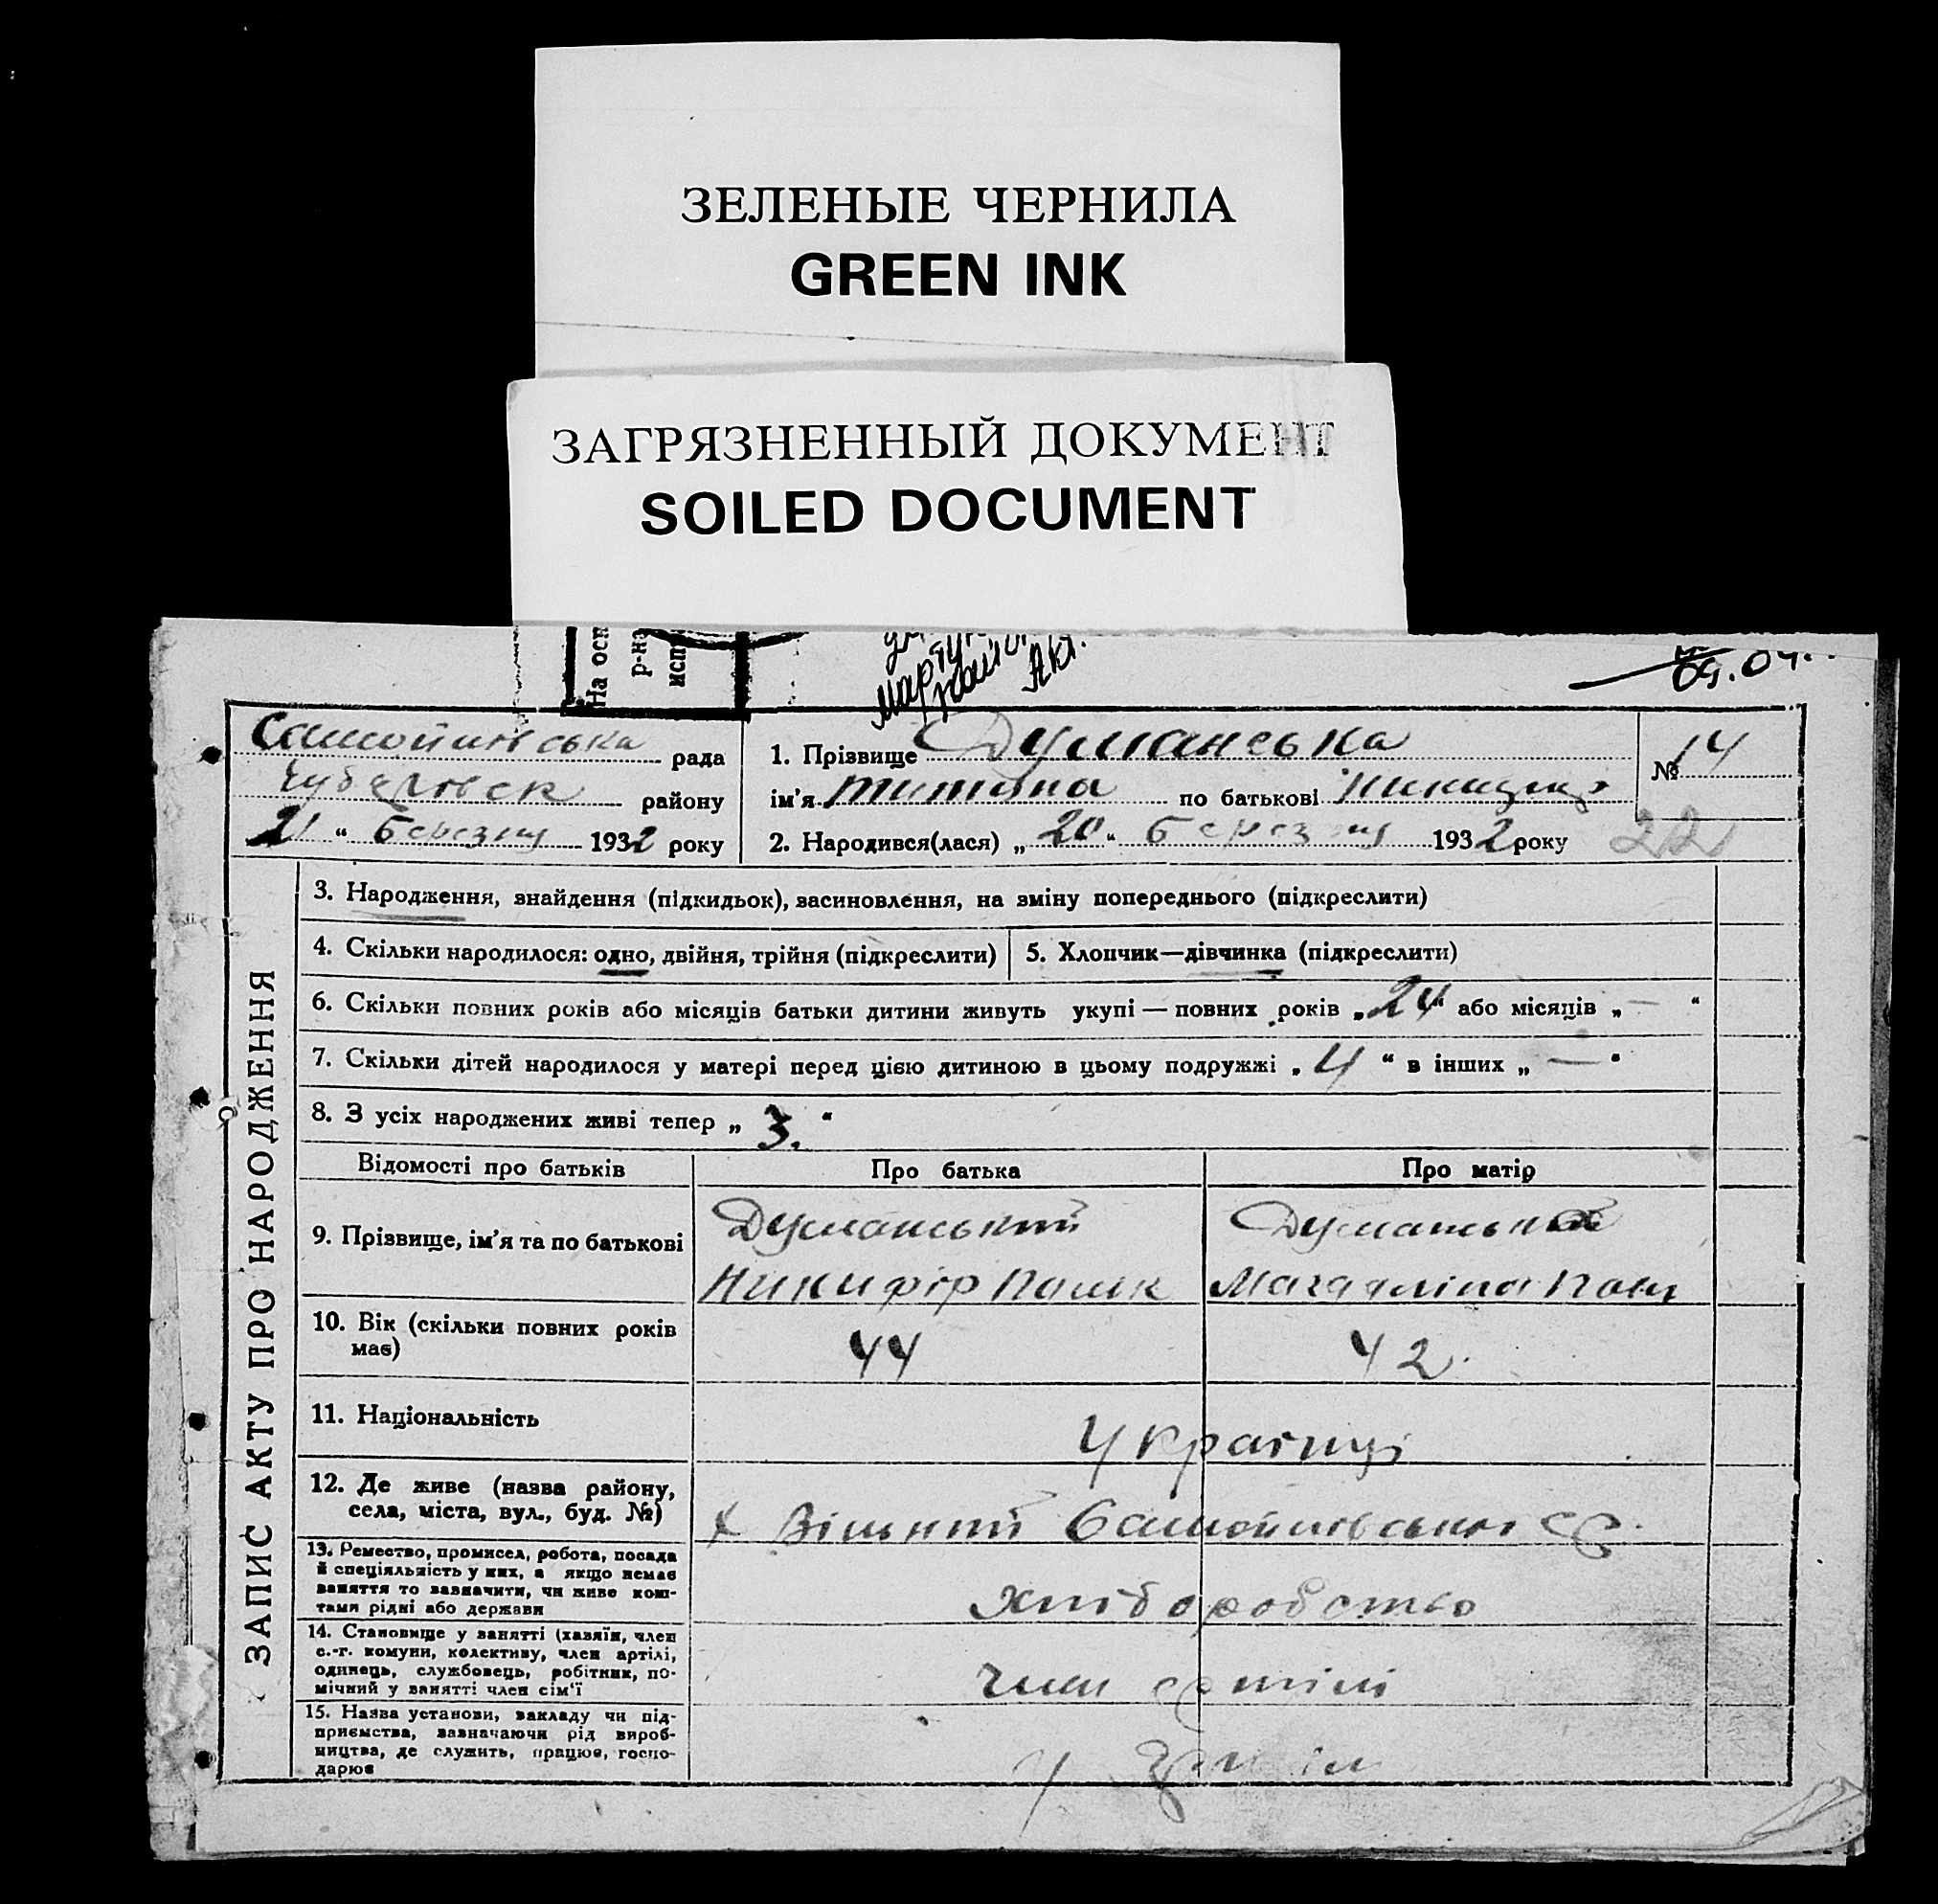 ЗЕЛЕНЫЕ ЧЕРНИЛА
GREEN INK
ЗАГРЯЗНЕННЫЙ ДОКУМЕНТ
SOILED DOCUMENT
На осн
р-на
испр
Акт.
09.04.
рада
району
21 " березня 1932 року
1. Прізвище Думанська
ім'я Титяна по батькові
2. Народився(лася) „ 20 " березня 1932 року
№ 14
22
ЗАПИС АКТУ ПРО НАРОДЖЕННЯ
3. Народження, знайдення (підкидьок), засиновлення, на зміну попереднього (підкреслити)
4. Скільки народилося: одно, двійня, трійня (підкреслити)
5. Хлопчик—дівчинка (підкреслити)
6. Скільки повних років або місяців батьки дитини живуть укупі — повних років „ 24 " або місяців „ — "
7. Скільки дітей народилося у матері перед цією дитиною в цьому подружжі „ 4 " в інших „ — "
8. З усіх народжених живі тепер „ 3. "
Відомості про батьків
Про батька
Про матір
9. Прізвище, ім'я та по батькові
Думанський
Никифір
Думанська
Магдаліна
10. Вік (скільки повних років
має)
44
42.
11. Національність
Українці
12. Де живе (назва району,
села, міста, вул., буд. №)
х Вільний Самойлівської ср.
13. Ремество, промисел, робота, посада
й спеціяльність у них, а якщо немає
заняття то зазначити, чи живе кош-
тами рідні або держави
хліборобство
14. Становище у занятті (хазяїн, член
с.-г. комуни, колективу, член артілі,
одинець, службовець, робітник, по-
мічний у занятті член сім'ї
член артілі
15. Назва установи, закладу чи під-
приємства, зазначаючи рід вироб-
ництва, де служить, працює, госпо-
дарює
у